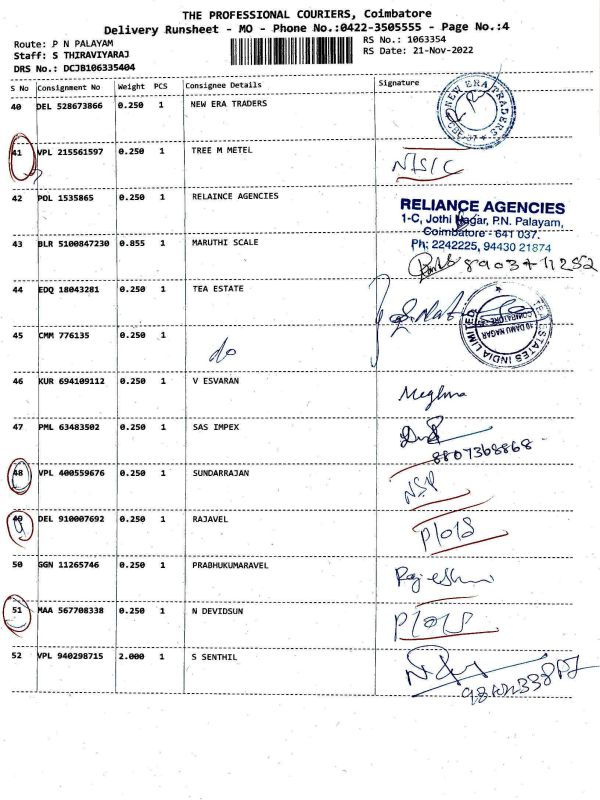 THE PROFESSIONAL COURIERS, Coimbatore
Delivery Runsheet - MO - Phone No.:0422-3505555 - Page No.:4
Route: P N PALAYAM RS No.: 1063354
Staff: S THIRAVIYARAJ RS Date: 21-Nov-2022
DRS No.: DCJB106335404
S No Consignment No Weight PCS Consignee Details Signature
40 DEL 528673866 0.250 1 NEW ERA TRADERS
NEW ERA TRADERS
41 VPL 215561597 0.250 1 TREE M METEL
N/S/C
42 POL 1535865 0.250 1 RELAINCE AGENCIES
RELIANCE AGENCIES
1-C, Jothi Nagar, P.N. Palayam,
Coimbatore - 641 037.
Ph: 2242225, 94430 21874
43 BLR 5100847230 0.855 1 MARUTHI SCALE
44 EDQ 18043281 0.250 1 TEA ESTATE
TEA ESTATES INDIA LIMITED
10 DAMU NAGAR
45 CMM 776135 0.250 1 do
46 KUR 694109112 0.250 1 V ESVARAN Meghna
47 PML 63483502 0.250 1 SAS IMPEX
8807368868
48 VPL 400559676 0.250 1 SUNDARRAJAN NSP
49 DEL 910007692 0.250 1 RAJAVEL P/O/S
50 GGN 11265746 0.250 1 PRABHUKUMARAVEL
51 MAA 567708338 0.250 1 N DEVIDSUN P/O/S
52 VPL 940298715 2.000 1 S SENTHIL